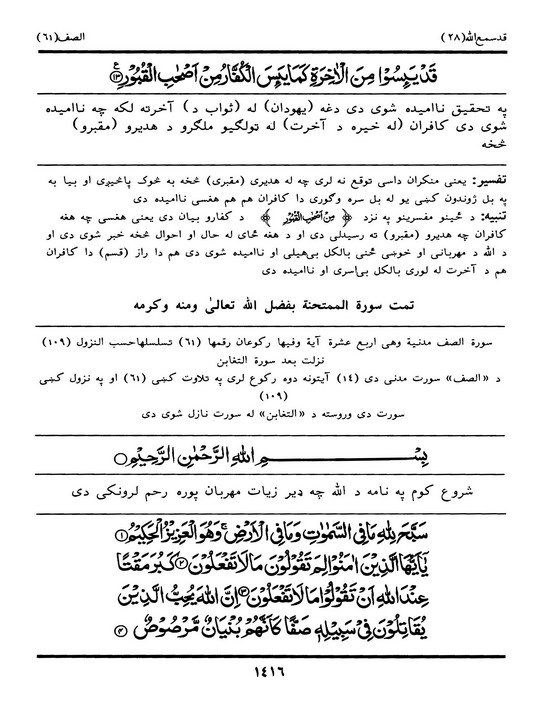 قدسمع الله (۲۸)
الصف (۶۱)
قَدْ يَىِٕسُوْا مِنَ الْاٰخِرَةِ كَمَا يَىِٕسَ الْكُفَّارُ مِنْ اَصْحٰبِ الْقُبُوْرِ ﴿۱۳﴾ ع
په تحقیق ناامیده شوی دی دغه (یهودان) له (ثواب د) آخرته لکه چه ناامیده
شوی دی کافران (له خیره د آخرت) له ټولګیو ملګرو د هدیرو (مقبرو)
څخه
تفسیر: یعنی منکران داسی توقع نه لری چه له هدیری (مقبری) څخه به څوک پاڅیږی او بیا به
په بل ژوندون کښی یو له بل سره وګوری دا کافران هم هم هفسی ناامیده دی
تنبیه: د ځینو مفسرینو په نزد ﴿ مِنْ اَصْحٰبِ الْقُبُوْرِ ﴾ د کفارو بیان دی یعنی هفسی چه هغه
کافران چه هدیرو (مقبرو) ته رسیدلی دی او د هغه ځای له حال او احوال څخه خبر شوی دی او
د الله د مهربانی او خوښی څنی بالکل بی‌هیلی او ناامیده شوی دی هم دا راز (قسم) دا کافران
هم د آخرت له لوری بالکل بی‌اسری او ناامیده دی
تمت سورة الممتحنة بفضل الله تعالیٰ ومنه وکرمه
سورة الصف مدنیة وهی اربع عشرة آیة وفیها رکوعان رقمها (۶۱) تسلسلها حسب النزول (۱۰۹)
نزلت بعد سورة التغابن
د «الصف» سورت مدنی دی (۱۴) آیتونه دوه رکوع لری په تلاوت کښی (۶۱) او په نزول کښی
(۱۰۹)
سورت دی وروسته د «التغابن» له سورت نازل شوی دی
بِسْمِ اللّٰهِ الرَّحْمٰنِ الرَّحِيْمِ ○
شروع کوم په نامه د الله چه ډیر زیات مهربان پوره رحم لرونکی دی
سَبَّحَ لِلّٰهِ مَا فِی السَّمٰوٰتِ وَمَا فِی الْاَرْضِ ۚ وَهُوَ الْعَزِيْزُ الْحَكِيْمُ ﴿۱﴾
يٰٓاَيُّهَا الَّذِيْنَ اٰمَنُوْا لِمَ تَقُوْلُوْنَ مَا لَا تَفْعَلُوْنَ ﴿۲﴾ كَبُرَ مَقْتًا
عِنْدَ اللّٰهِ اَنْ تَقُوْلُوْا مَا لَا تَفْعَلُوْنَ ﴿۳﴾ اِنَّ اللّٰهَ يُحِبُّ الَّذِيْنَ
يُقَاتِلُوْنَ فِیْ سَبِيْلِهٖ صَفًّا كَاَنَّهُمْ بُنْيَانٌ مَّرْصُوْصٌ ﴿۴﴾
۱۴۱۶